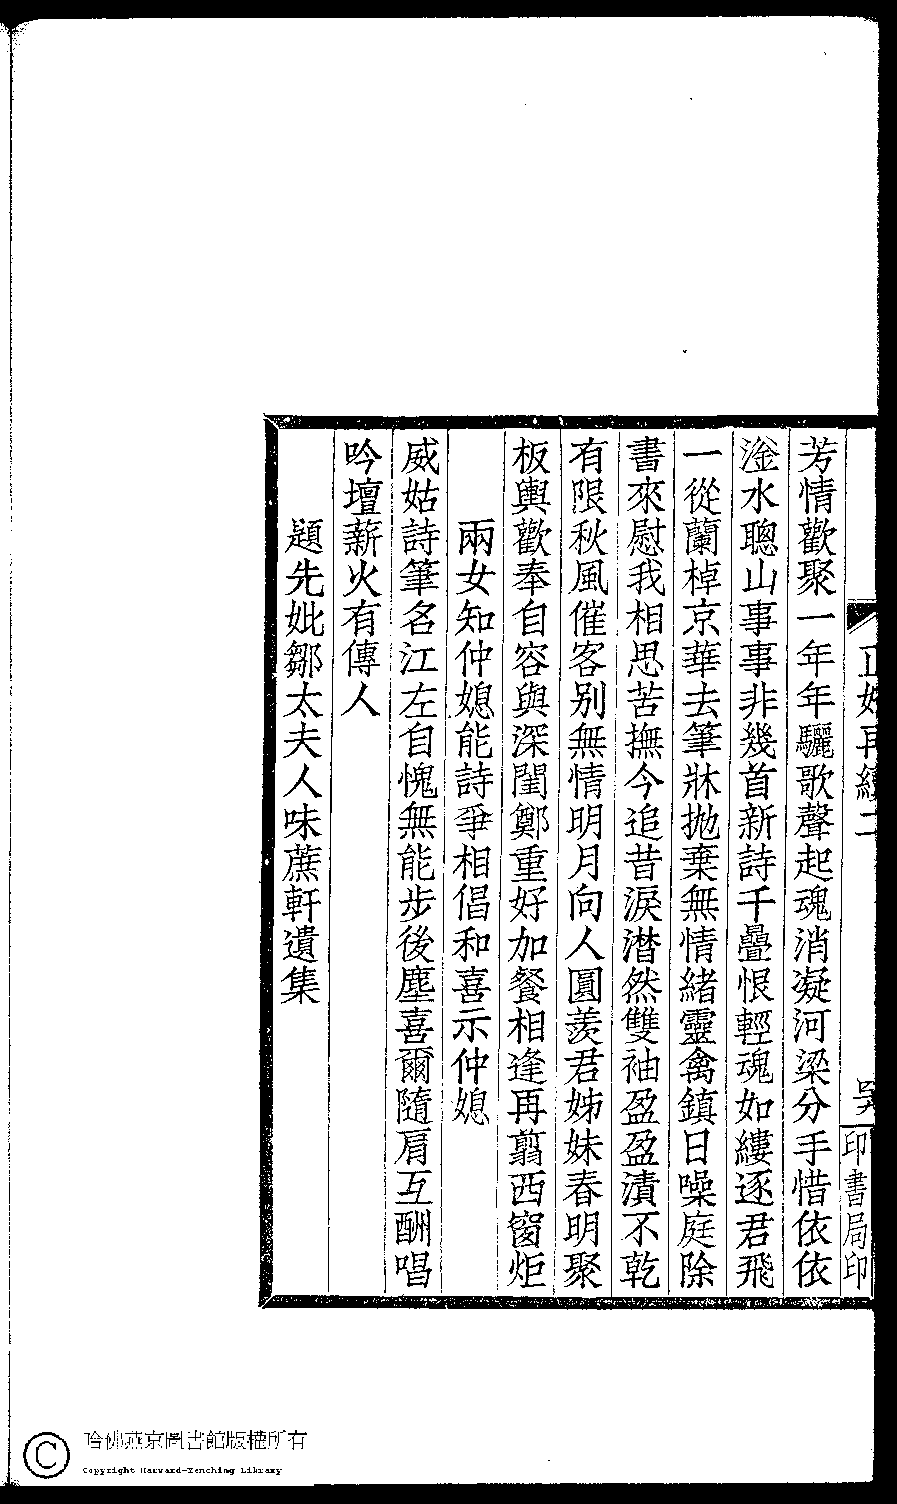 芳情歡聚一年年驪歌聲起魂消凝河梁分手惜依依
淦水聰山事事非幾首新詩千疊恨輕魂如縷逐君飛
一從蘭棹京華去筆牀抛棄無情緒靈禽鎮日噪庭除
書來慰我相思苦撫今追昔淚潸然雙袖盈盈漬不乾
有限秋風催客別無情明月向人圓羨君姊妹春明聚
板輿歡奉自容與深閨鄭重好加餐相逢再翦西窗炬
兩女知仲媳能詩爭相倡和喜示仲媳
威姑詩筆名江左自愧無能步後塵喜爾隨肩互酬唱
吟壇薪火有傳人
題先妣鄒太夫人味蔗軒遺集
再續二
印書局印
哈佛燕京圖書館版權所有
Copyright Harvard-Yenching Library